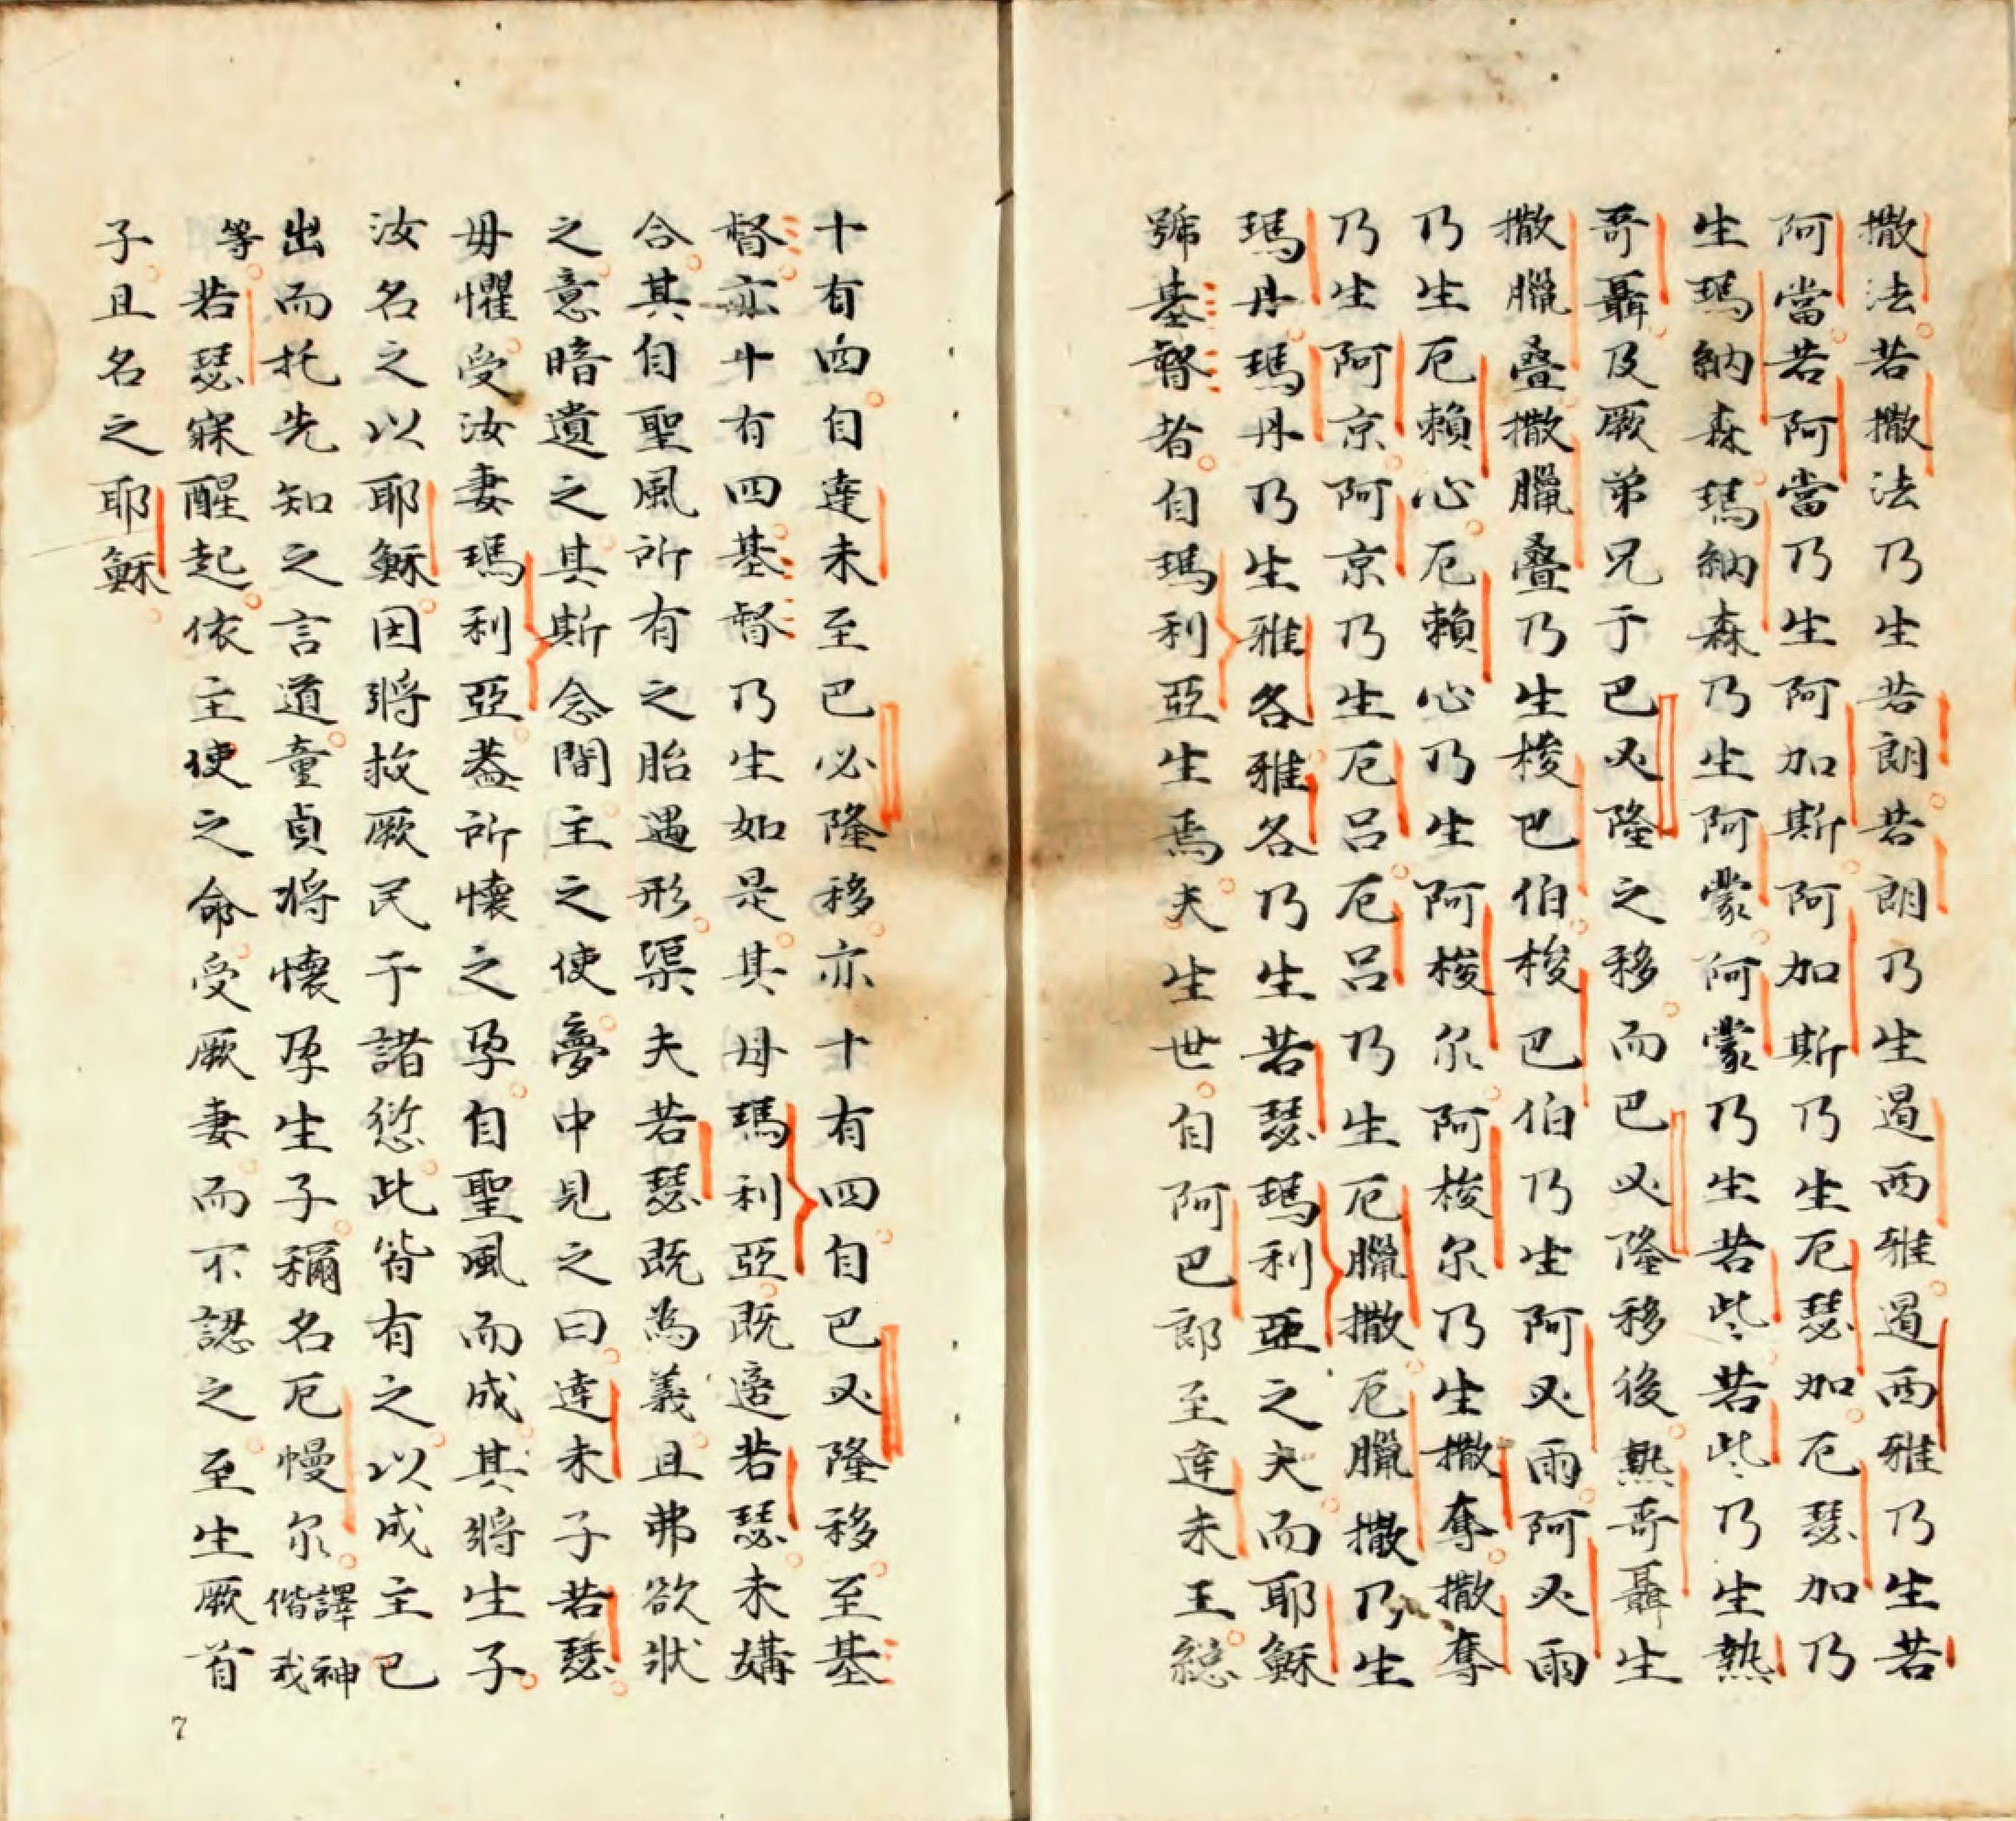 撒法若撒法乃生若朗若朗乃生過西雅過西雅乃生若
阿當若阿當乃生阿加斯阿加斯乃生厄瑟加厄瑟加乃
生瑪納森瑪納森乃生阿蒙阿蒙乃生若些若些乃生熱
哥聶及厥弟兄于巴必隆之移而巴必隆移後熱哥聶生
撒臘疊撒臘疊乃生梭巴伯梭巴伯乃生阿必雨阿必雨
乃生厄賴心厄賴心乃生阿梭尔阿梭尔乃生撒奪撒奪
乃生阿京阿京乃生厄呂厄呂乃生厄臘撒厄臘撒乃生
瑪丹瑪丹乃生雅各雅各乃生若瑟瑪利亞之夫而耶穌
號基督者自瑪利亞生焉夫生世自阿巴郎至達未王總
十有四自達未至巴必隆移亦十有四自巴必隆移至基
督亦十有四基督乃生如是其母瑪利亞既適若瑟未媾
合其自聖風所有之胎遇形渠夫若瑟既為義且弗欲狀
之意暗遺之其斯念間主之使夢中見之曰達未子若瑟
毋懼受汝妻瑪利亞蓋所懷之孕自聖風而成其將生子
汝名之以耶穌因將救厥民于諸愆此皆有之以成主已
出而托先知之言道童貞將懷孕生子稱名厄慢尔譯神偕我
等若瑟寐醒起依主使之命受厥妻而不認之至生厥首
子且名之耶穌
7